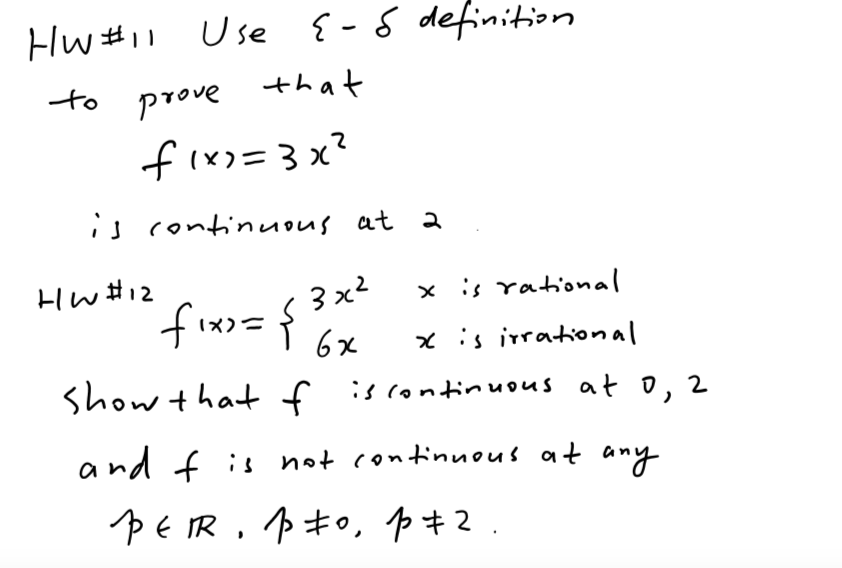 HW#11 Use ε-δ definition
to prove that
f(x)=3x²
is continuous at 2.
HW#12 f(x)={ 3x² x is rational
6x x is irrational
show that f is continuous at 0, 2
and f is not continuous at any
p∈ℝ, p≠0, p≠2.